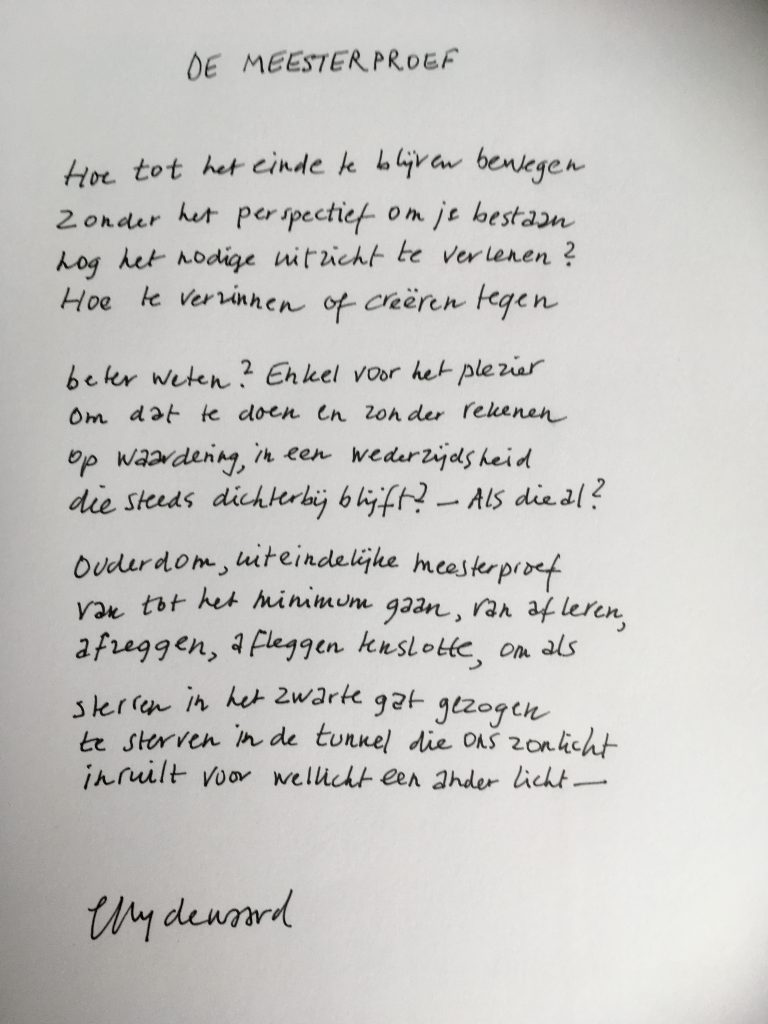 DE MEESTERPROEF
Hoe tot het einde te blijven bewegen
zonder het perspectief om je bestaan
nog het nodige uitzicht te verlenen?
Hoe te verzinnen of creëren tegen
beter weten? Enkel voor het plezier
om dat te doen en zonder rekenen
op waardering, in een wederzijdsheid
die steeds dichterbij blijft? — Als die al?
Ouderdom, uiteindelijke meesterproef
van tot het minimum gaan, van afleren,
afzeggen, afleggen tenslotte, om als
sterren in het zwarte gat gezogen
te sterven in de tunnel die ons zonlicht
inruilt voor wellicht een ander licht —
Elly de Waard